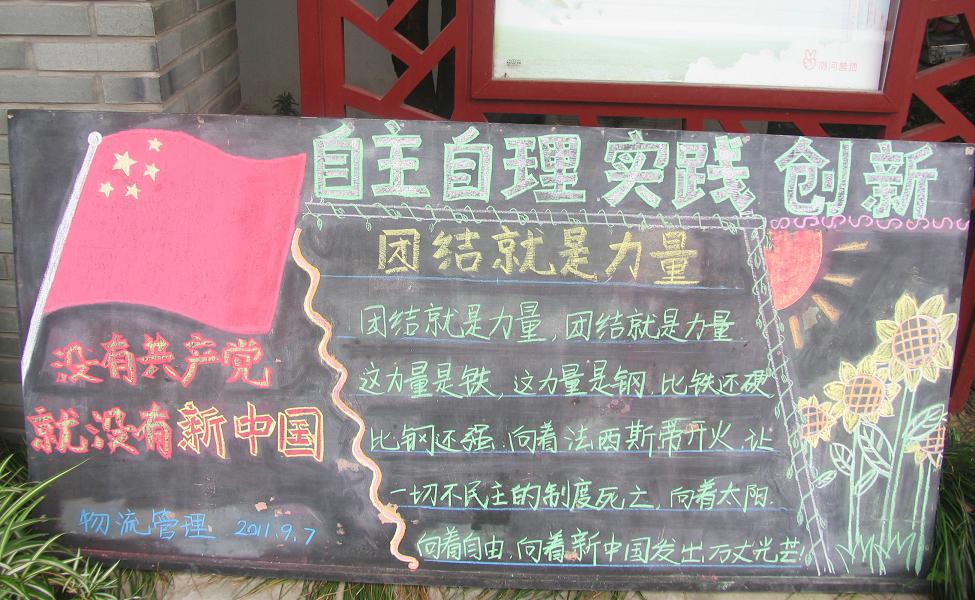 自主自理 实践 创新
团结就是力量
团结就是力量,团结就是力量
这力量是铁,这力量是钢.比铁还硬
比钢还强.向着法西斯蒂开火.让
一切不民主的制度死亡,向着太阳.
向着自由.向着新中国发出万丈光芒!
没有共产党
就没有新中国
物流管理 2011.9.7